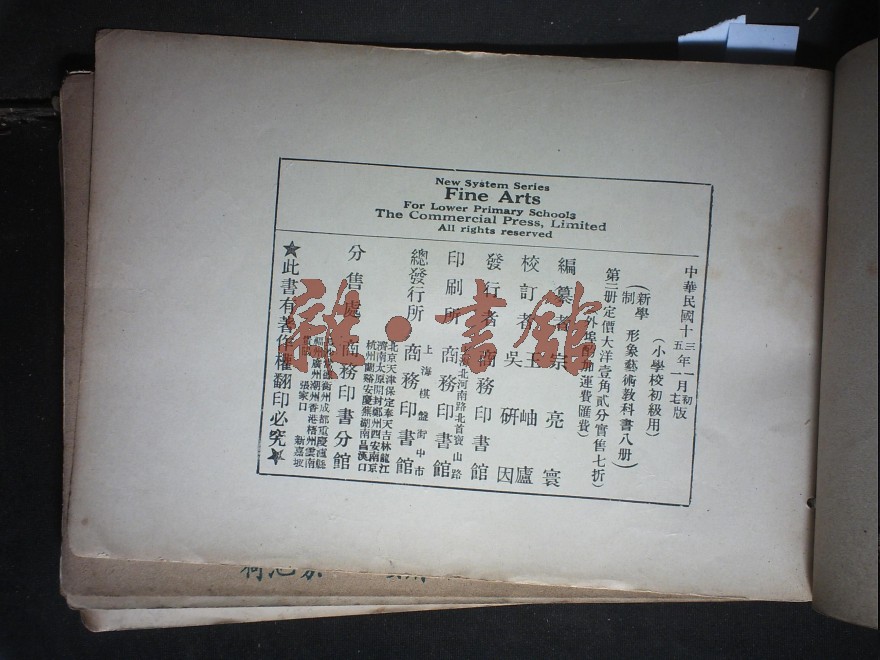 New System Series
Fine Arts
For Lower Primary Schools
The Commercial Press, Limited
All rights reserved
中華民國十三年一月初版
五年一月七版
(小學校初級用)
(新學制 形象藝術教科書八册)
定價大洋壹角貳分實售七折)
外埠酌加運費匯費)
編纂者 宗亮寰
校訂者 王岫廬
吳研因
發行者 商務印書館
上海北河南路北首寶山路
印刷所 商務印書館
上海棋盤街中市
總發行所 商務印書館
北京天津保定奉天吉林龍江
濟南太原開封鄭州西安南京
杭州蘭谿安慶蕪湖南昌漢口
分售處 商務印書分館
衡州成都重慶瀘縣
福州廣州潮州香港梧州雲南
張家口 新嘉坡
★此書有著作權翻印必究★
雜·書館